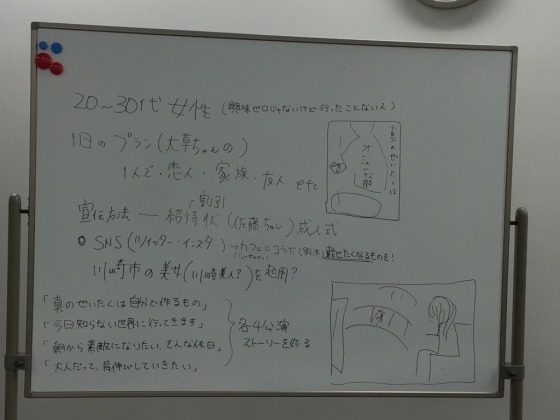 20～30代 女性 (興味ゼロじゃないけど行ったことない人)
1日のプラン(大草ちゃんの)
1人で・恋人・家族・友人 とetc
割引
宣伝方法 ― 招待状 (佐藤ちゃん) 成人式
◎ SNS (ツイッター・インスタ) →カフェとコラボ (鈴木) 載せたくなるものを!
川崎市の美女(川崎美人?) を起用?
「真のぜいたくは自分で作るもの」
「今日知らない世界に行ってきます」
「朝から素敵になりたい、そんな休日」
「大人だって、背伸びしていきたい」
各4公演
ストーリーを作る
真のぜいたくは